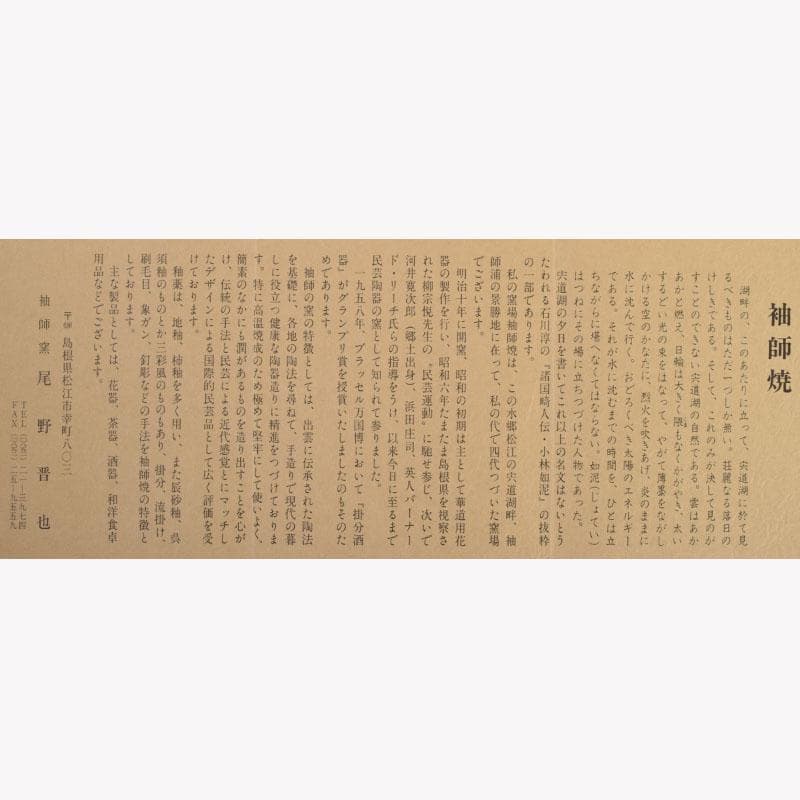 袖師焼
湖畔の、このあたりに立って、宍道湖に於て見
るべきものはただ一つしか無い。荘麗なる落日の
けしきである。そして、これのみが決して見のが
すことのできない宍道湖の自然である。雲はあか
あかと燃え、日輪は大きく隈もなくかがやき、太い
するどい光の束をはなって、やがて薄墨をながし
かける空のかなたに、烈火を吹きあげ、炎のままに
水に沈んで行く。おどろくべき太陽のエネルギー
である。それが水に沈むまでの時間を、ひとは立
ちながらに堪へなくてはならない。如泥(じょてい)
はつねにその場に立ちつづけた人物であった。
宍道湖の夕日を書いてこれ以上の名文はないとう
たわれる石川淳の『諸国畸人伝・小林如泥』の抜粋
の一部であります。
私の窯場袖師焼は、この水郷松江の宍道湖畔、袖
師浦の景勝地に在って、私の代で四代つづいた窯場
でございます。
明治十年に開窯、昭和の初期は主として華道用花
器の製作を行い、昭和六年たまたま島根県を視察さ
れた柳宗悦先生の〝民芸運動〟に馳せ参じ、次いで
河井寛次郎(郷土出身)、浜田庄司、英人バーナー
ド・リーチ氏らの指導をうけ、以来今日に至るまで
民芸陶器の窯として知られて参りました。
一九五八年、ブラッセル万国博において『掛分酒
器』がグランプリ賞を授賞いたしましたのもそのた
めであります。
袖師の窯の特徴としては、出雲に伝承された陶法
を基礎に、各地の陶法を尋ねて、手造りで現代の暮
しに役立つ健康な陶器造りに精進をつづけておりま
す。特に高温焼成のため極めて堅牢にして使いよく、
簡素のなかにも潤があるものを造り出すことを心が
け、伝統の手法と民芸による近代感覚とにマッチし
たデザインによる国際的民芸品として広く評価を受
けております。
釉薬は、地釉、柿釉を多く用い、また辰砂釉、呉
須釉のものとか三彩風のものもあり、掛分、流掛け、
刷毛目、象ガン、釘彫などの手法を袖師焼の特徴と
しております。
主な製品としては、花器、茶器、酒器、和洋食卓
用品などでございます。
〒 島根県松江市幸町八〇三
袖師窯 尾野晋也
TEL (〇八五二)二一-三九七四
FAX (〇八五二)二五-九五五九